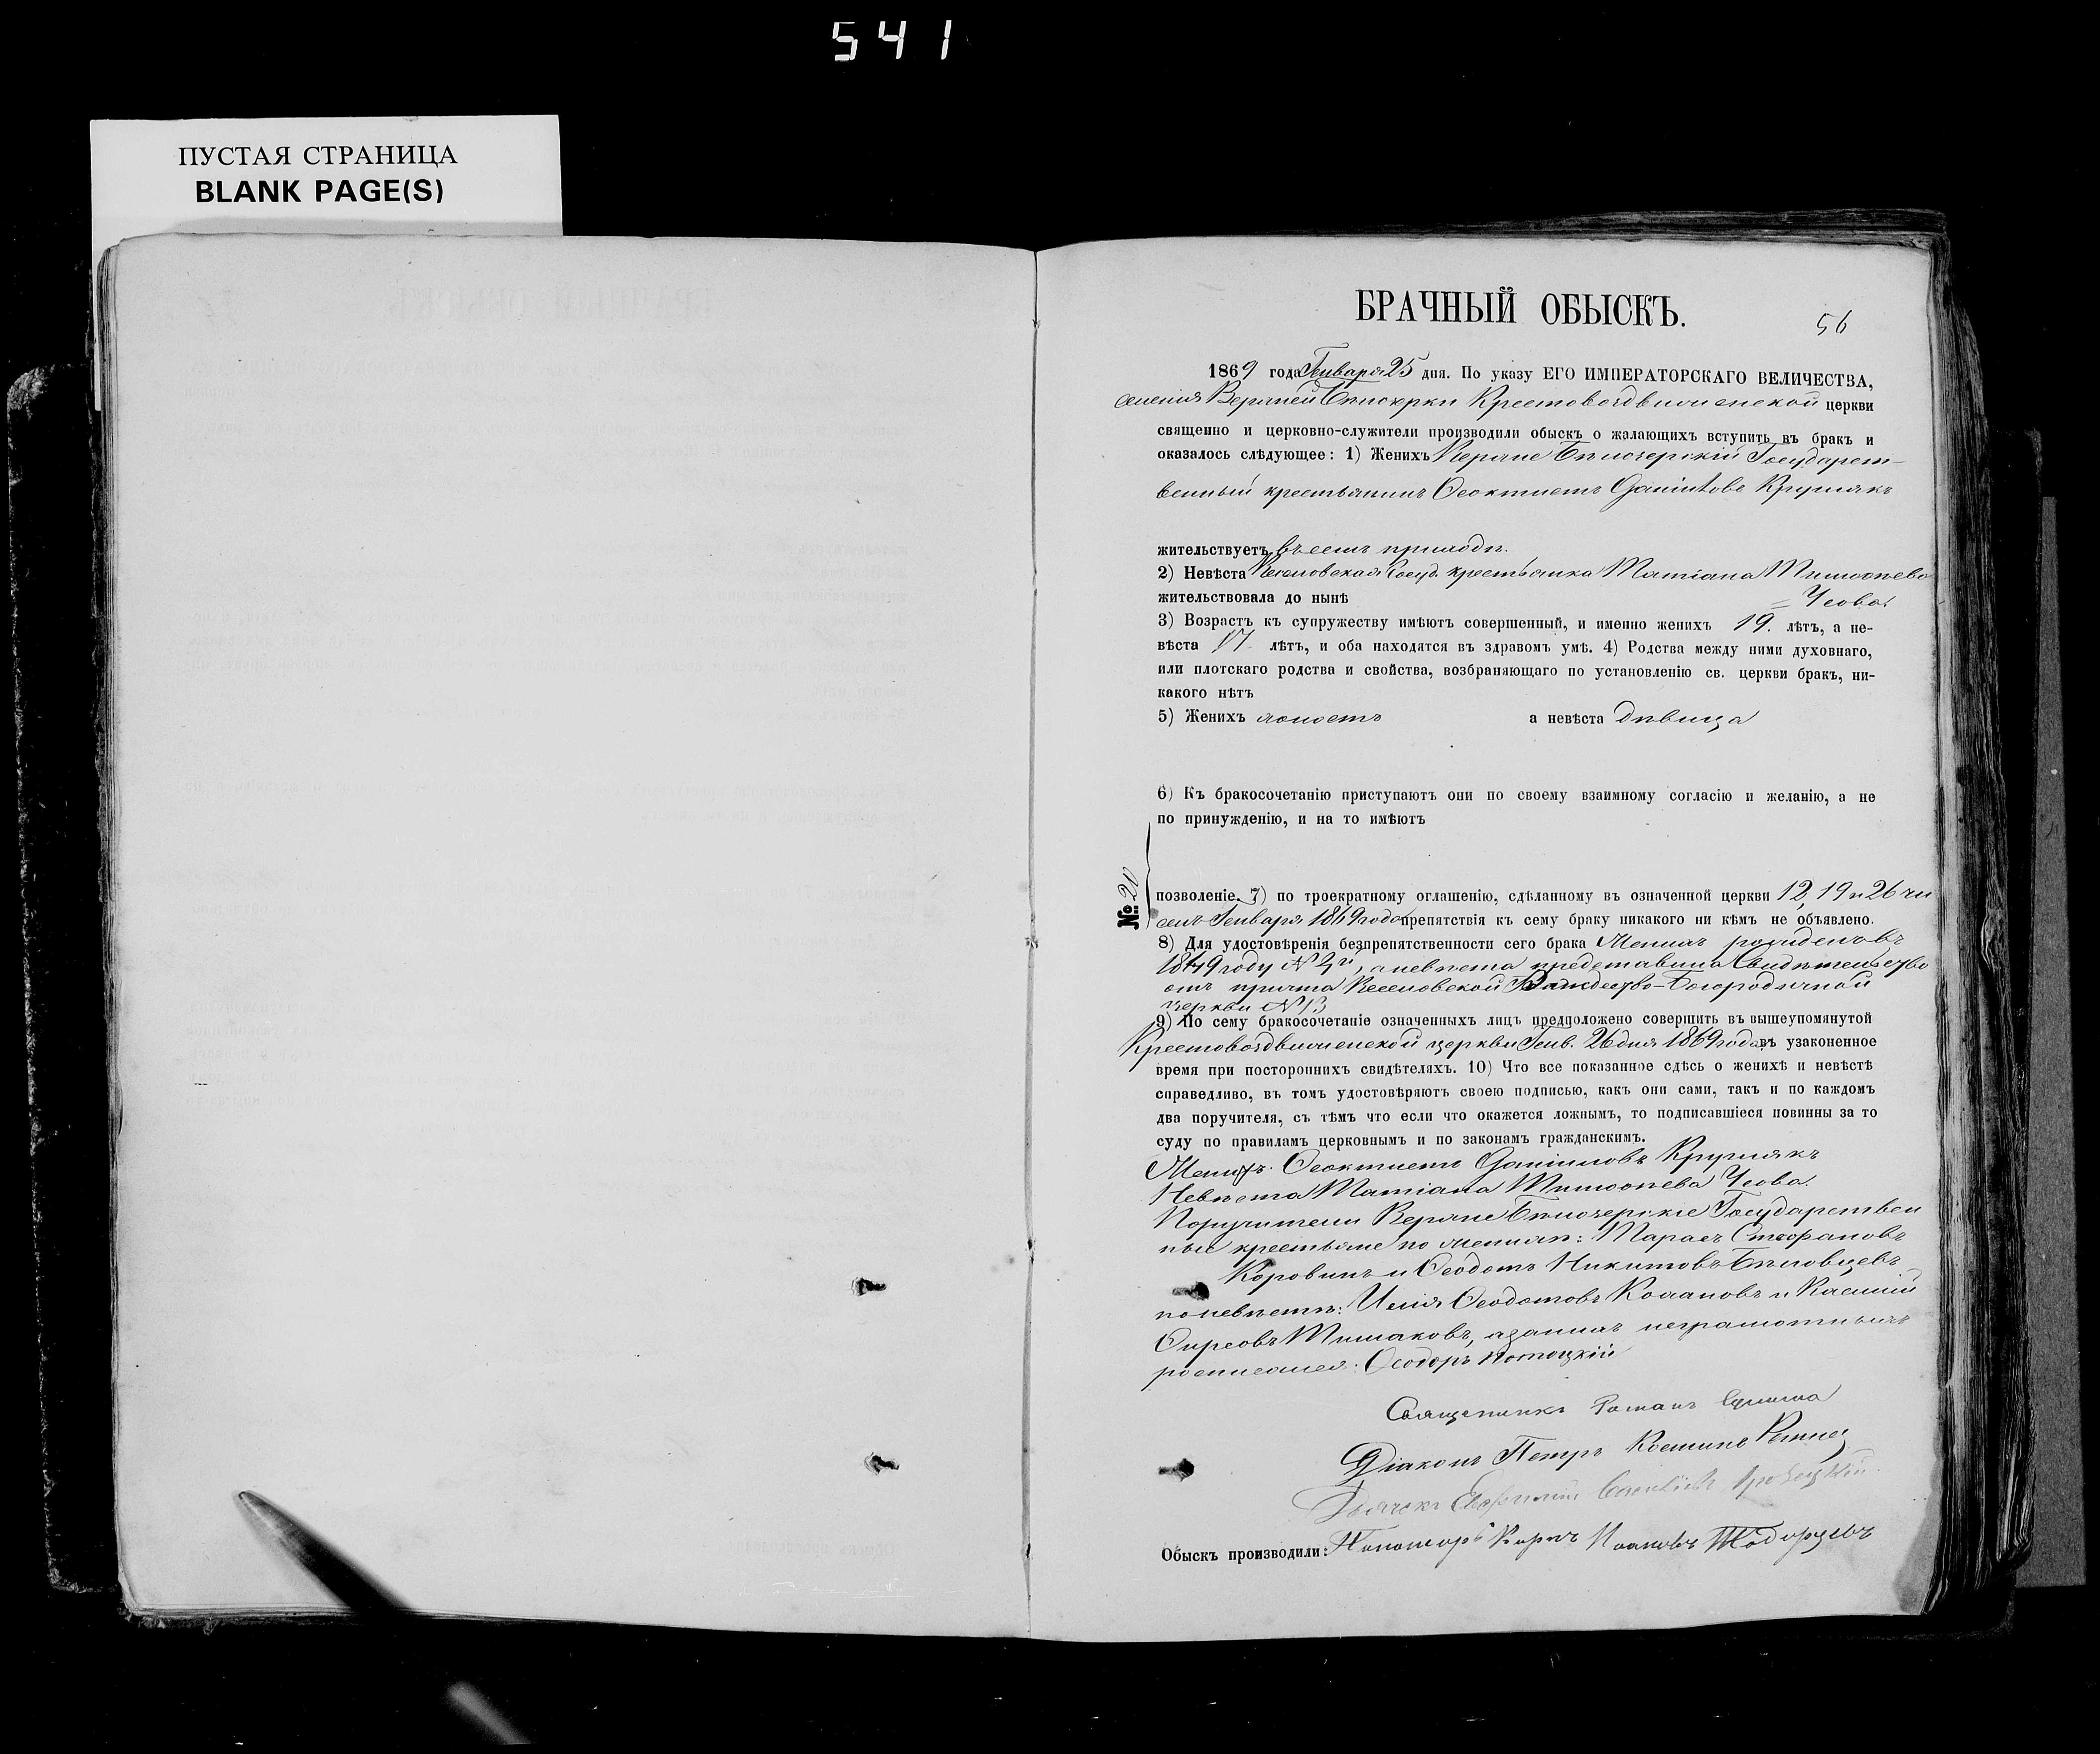 541
ПУСТАЯ СТРАНИЦА
BLANK PAGE(S)
БРАЧНЫЙ ОБЫСКЪ.
56
1869 года Генваря 25 дня. По указу ЕГО ИМПЕРАТОРСКАГО ВЕЛИЧЕСТВА,
селенія Верхней Крестовоздвиженской церкви
священно и церковно-служители производили обыскъ о жалающихъ вступить въ бракъ и
оказалось слѣдующее: 1) Женихъ Верхне Бѣлозерскій Государст-
венный крестьянинъ Ѳеоктистъ Даніиловъ Кружнякъ
жительствуетъ въ семъ приходѣ.
2) Невѣста Веселовская Госуд. крестьянка Татіана Тимоѳѣева
жительствовала до нынѣ = Усова.
3) Возрастъ къ супружеству имѣютъ совершенный, и именно женихъ 19. лѣтъ, а не-
вѣста 17 лѣтъ, и оба находятся въ здравомъ умѣ. 4) Родства между ними духовнаго,
или плотскаго родства и свойства, возбраняющаго по установленію св. церкви бракъ, ни-
какого нѣтъ
5) Женихъ холостъ а невѣста дѣвица
6) Къ бракосочетанію приступаютъ они по своему взаимному согласію и желанію, а не
по принужденію, и на то имѣютъ
№: 20
позволеніе. 7) по троекратному оглашенію, сдѣланному въ означенной церкви 12, 19 и 26 чи
селъ Генваря 1869 года препятствія къ сему браку никакого ни кѣмъ не объявлено.
8) Для удостовѣренія безпрепятственности сего брака Женихъ рожденъ въ
1849 году № а невѣста представила Свидѣтельство
отъ причта Веселовской Рождество-Богородичной
церкви №
9) По сему бракосочетаніе означенныхъ лицъ предположено совершить въ вышеупомянутой
Крестовоздвиженской церкви Генв. 26 дня 1869 года въ узаконенное
время при постороннихъ свидѣтеляхъ. 10) Что все показанное сдѣсь о женихѣ и невѣстѣ
справедливо, въ томъ удостовѣряютъ своею подписью, какъ они сами, такъ и по каждомъ
два поручителя, съ тѣмъ что если что окажется ложнымъ, то подписавшіеся повинны за то
суду по правиламъ церковнымъ и по законамъ гражданскимъ.
Женихъ Ѳеоктистъ Даніиловъ Кружнякъ
Невѣста Татіана Тимоѳѣева Усова.
Поручители Верхне Бѣлозерскіе Государствен
ные крестьяне по женихѣ: Тарасъ Стефановъ
Коровинъ и Ѳеодотъ Никитовъ Бѣловцевъ
по невѣстѣ: Илія Ѳеодотовъ и
а за нихъ неграмотныхъ
росписался: Ѳеодоръ Котоцкій
Священникъ Романъ
Діаконъ Петръ
Дьячекъ
Обыскъ производили: Пономарь Іоановъ